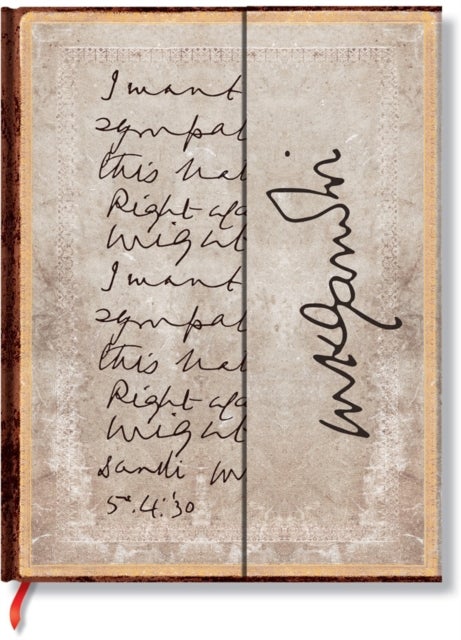 I want
sympat
this bat
Right aga
Might
I want
sympat
this bat
Right aga
Might
Sandi M
5.4.'30
MKGandhi